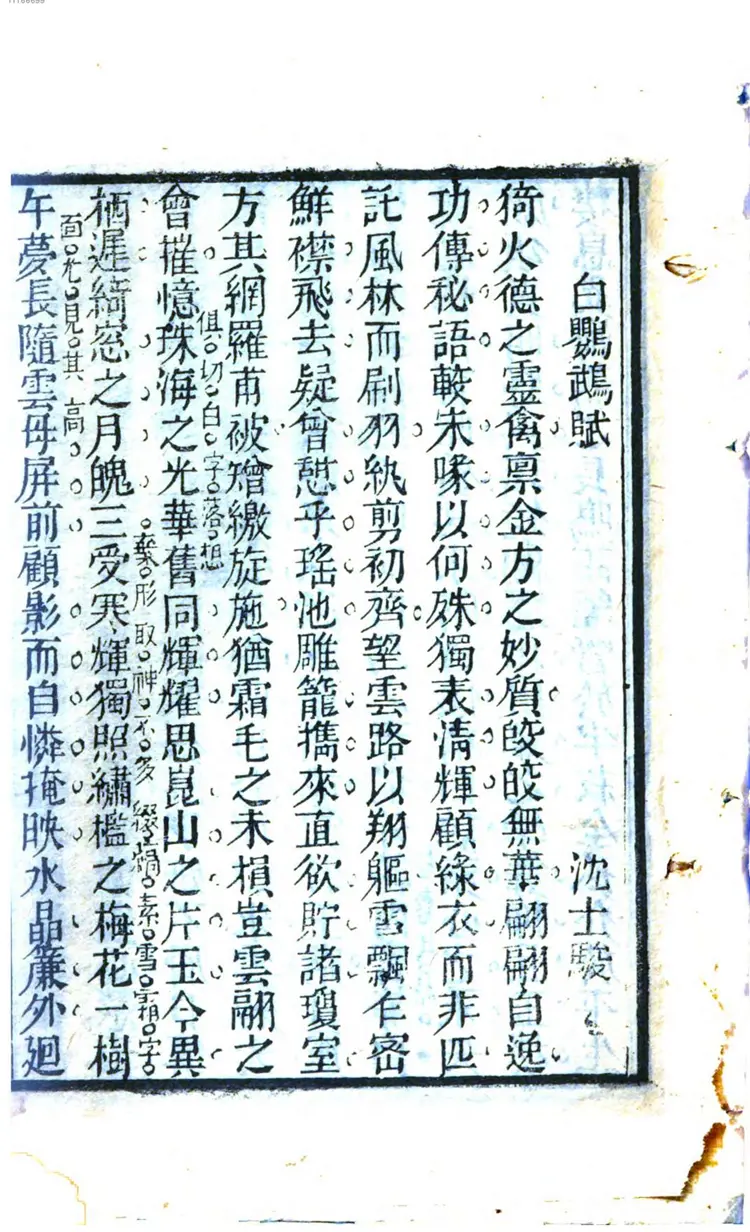 白鸚鵡賦 沈士駿
猗火德之靈禽禀金方之妙質皎皎無華翩翩自逸
功傳秘語較朱喙以何殊獨表情輝顧綠衣而非匹
託風林而刷羽紈剪初齊望雲路以翔軀雪飄乍密
鮮襟飛去疑曾憩乎瑤池雕籠擕來直欲貯諸瓊室
方其網羅甫被矰繳旋施猶霜毛之未損豈雲翮之
俱切白字落想
會摧憶珠海之光華舊同輝耀思崑山之片玉今異
棄形取神不多綴縞素雪霜字
栖遲綺窓之月魄三更寒輝獨照繡檻之梅花一樹
面尤見其高
午夢長隨雲母屏前顧影而自憐掩映水晶簾外廻